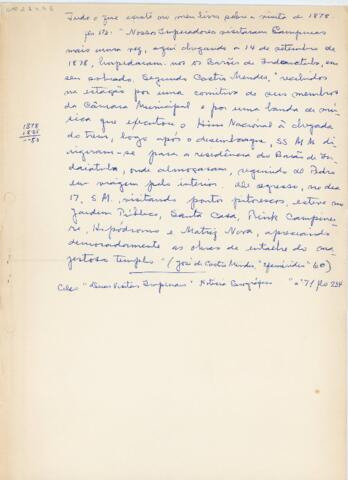 Tudo o que existe no meu livro sobre a visita de 1878
fls 172: "Nossos Imperadores visitaram Campinas
mais uma vez, aqui chegando a 14 de setembro de
1878, hospedaram-nos os Barões de Indaiatuba, em
seu sobrado. Segundo Castro Mendes, "recebidos
na estação por uma comitiva de seus membros
da Câmara Municipal e por uma banda de mú-
sica que executou o Hino Nacional à chegada
do trem, logo após o desembarque, SS M M di-
rigiram-se para a residência do Barão de In-
daiatuba, onde almoçaram, seguindo D. Pedro
em viagem pelo interior. De regresso, no dia
17, S.M. visitando pontos pitorescos, esteve no
Jardim Público, Santa Casa, Rink Campinei-
ro, Hipódromo e Matriz Nova, apreciando
demoradamente as obras de entalhe do ma-
jestoso templo" (José de Castro Mendes, "Efemérides"
1878
1875
Cita "Duas Visitas Imperiais" Notícia Geográfica nº 71